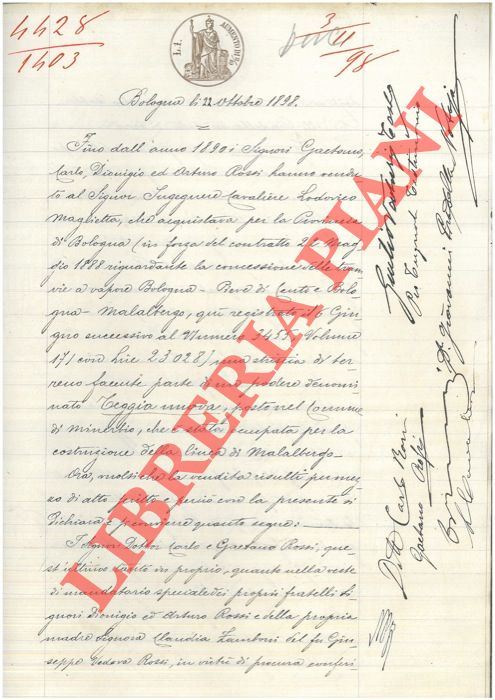 4428
1403
L. 1
AUMENTO DI 2/10
3
11
98
Bologna li 22 Ottobre 1898.
Fino dall'anno 1890 i Signori Gaetano,
Carlo, Dionigio ed Arturo Rossi hanno vendu
to al Signor Ingegnere Cavaliere Lodovico
Maglietta, che acquistava per la Provincia
di Bologna (in forza del contratto 22 Mag
gio 1888 riguardante la concessione delle tram
vie a vapore Bologna - Pieve di Cento e Bolo
gna - Malalbergo, qui registrato il 6 Giu
gno successivo al Numero 3455 Volume
171 con Lire 23028) una striscia di ter
reno facente parte di un podere denomi
nato Teggia nuova, posto nel Comune
di Minerbio, che è stata occupata per la
costruzione della linea di Malalbergo.
Ora, volsi che la vendita risulti per mez
zo di atto scritto e perciò con la presente si
dichiara e premette quanto segue:
I Signori Dottor Carlo e Gaetano Rossi, que
st'ultimo tanto in proprio, quanto nella veste
di mandatario speciale dei propri fratelli Si
gnori Dionigio ed Arturo Rossi e della propria
madre Signora Claudia Zamboni del fu Giu
seppe Vedova Rossi, in virtù di procura conferi
Dott. Carlo Rossi
Gaetano Rossi
Giovanni
LIBRERIA PIANI